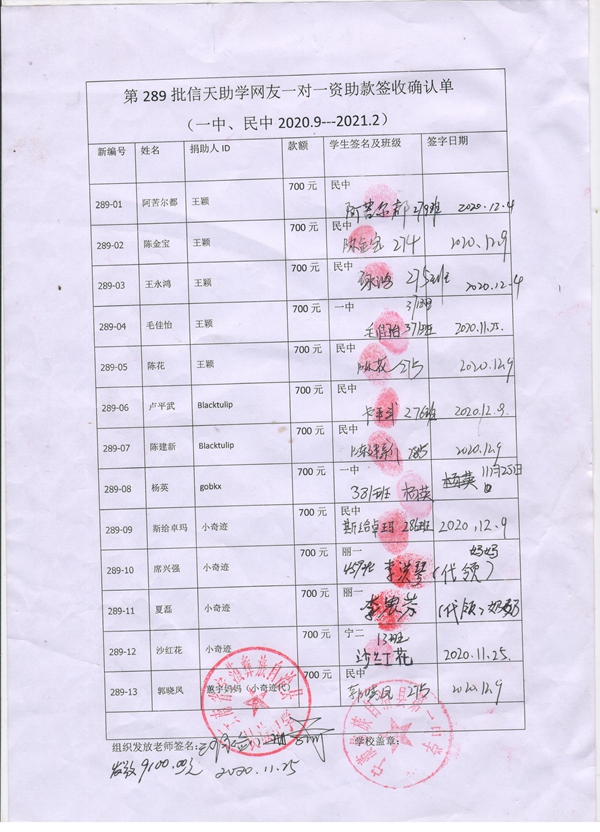 第 289 批信天助学网友一对一资助款签收确认单
（一中、民中 2020.9---2021.2）
新编号 姓名 捐助人 ID 款额 学生签名及班级 签字日期
289-01 阿苦尔都 王颖 700 元 民中 阿苦尔都 279班 2020.12.4
289-02 陈金宝 王颖 700 元 民中 陈金宝 274 2020.12.9
289-03 王永鸿 王颖 700 元 民中 275班 2020.12.4
289-04 毛佳怡 王颖 700 元 一中 毛佳怡 371班 2020.11.25.
289-05 陈花 王颖 700 元 民中 陈花 275 2020.12.9
289-06 卢平武 Blacktulip 700 元 民中 卢平武 276班 2020.12.9.
289-07 陈建新 Blacktulip 700 元 民中 陈建新 285 2020.12.9
289-08 杨英 gobkx 700 元 一中 381班 杨英 杨英 11月25日
289-09 斯给卓玛 小奇迹 700 元 民中 斯给卓玛 286班 2020.12.9
289-10 席兴强 小奇迹 700 元 丽一 李洪琴（代领） 妈妈
289-11 夏磊 小奇迹 700 元 丽一 （代领）奶奶
289-12 沙红花 小奇迹 700 元 宁二 13班 沙红花 2020.11.25.
289-13 郭晓凤 蕙宇妈妈（小奇迹代） 700 元 民中 郭晓凤 275 2020.12.9
组织发放老师签名： 学校盖章：
发放9100.00元 2020.11.25